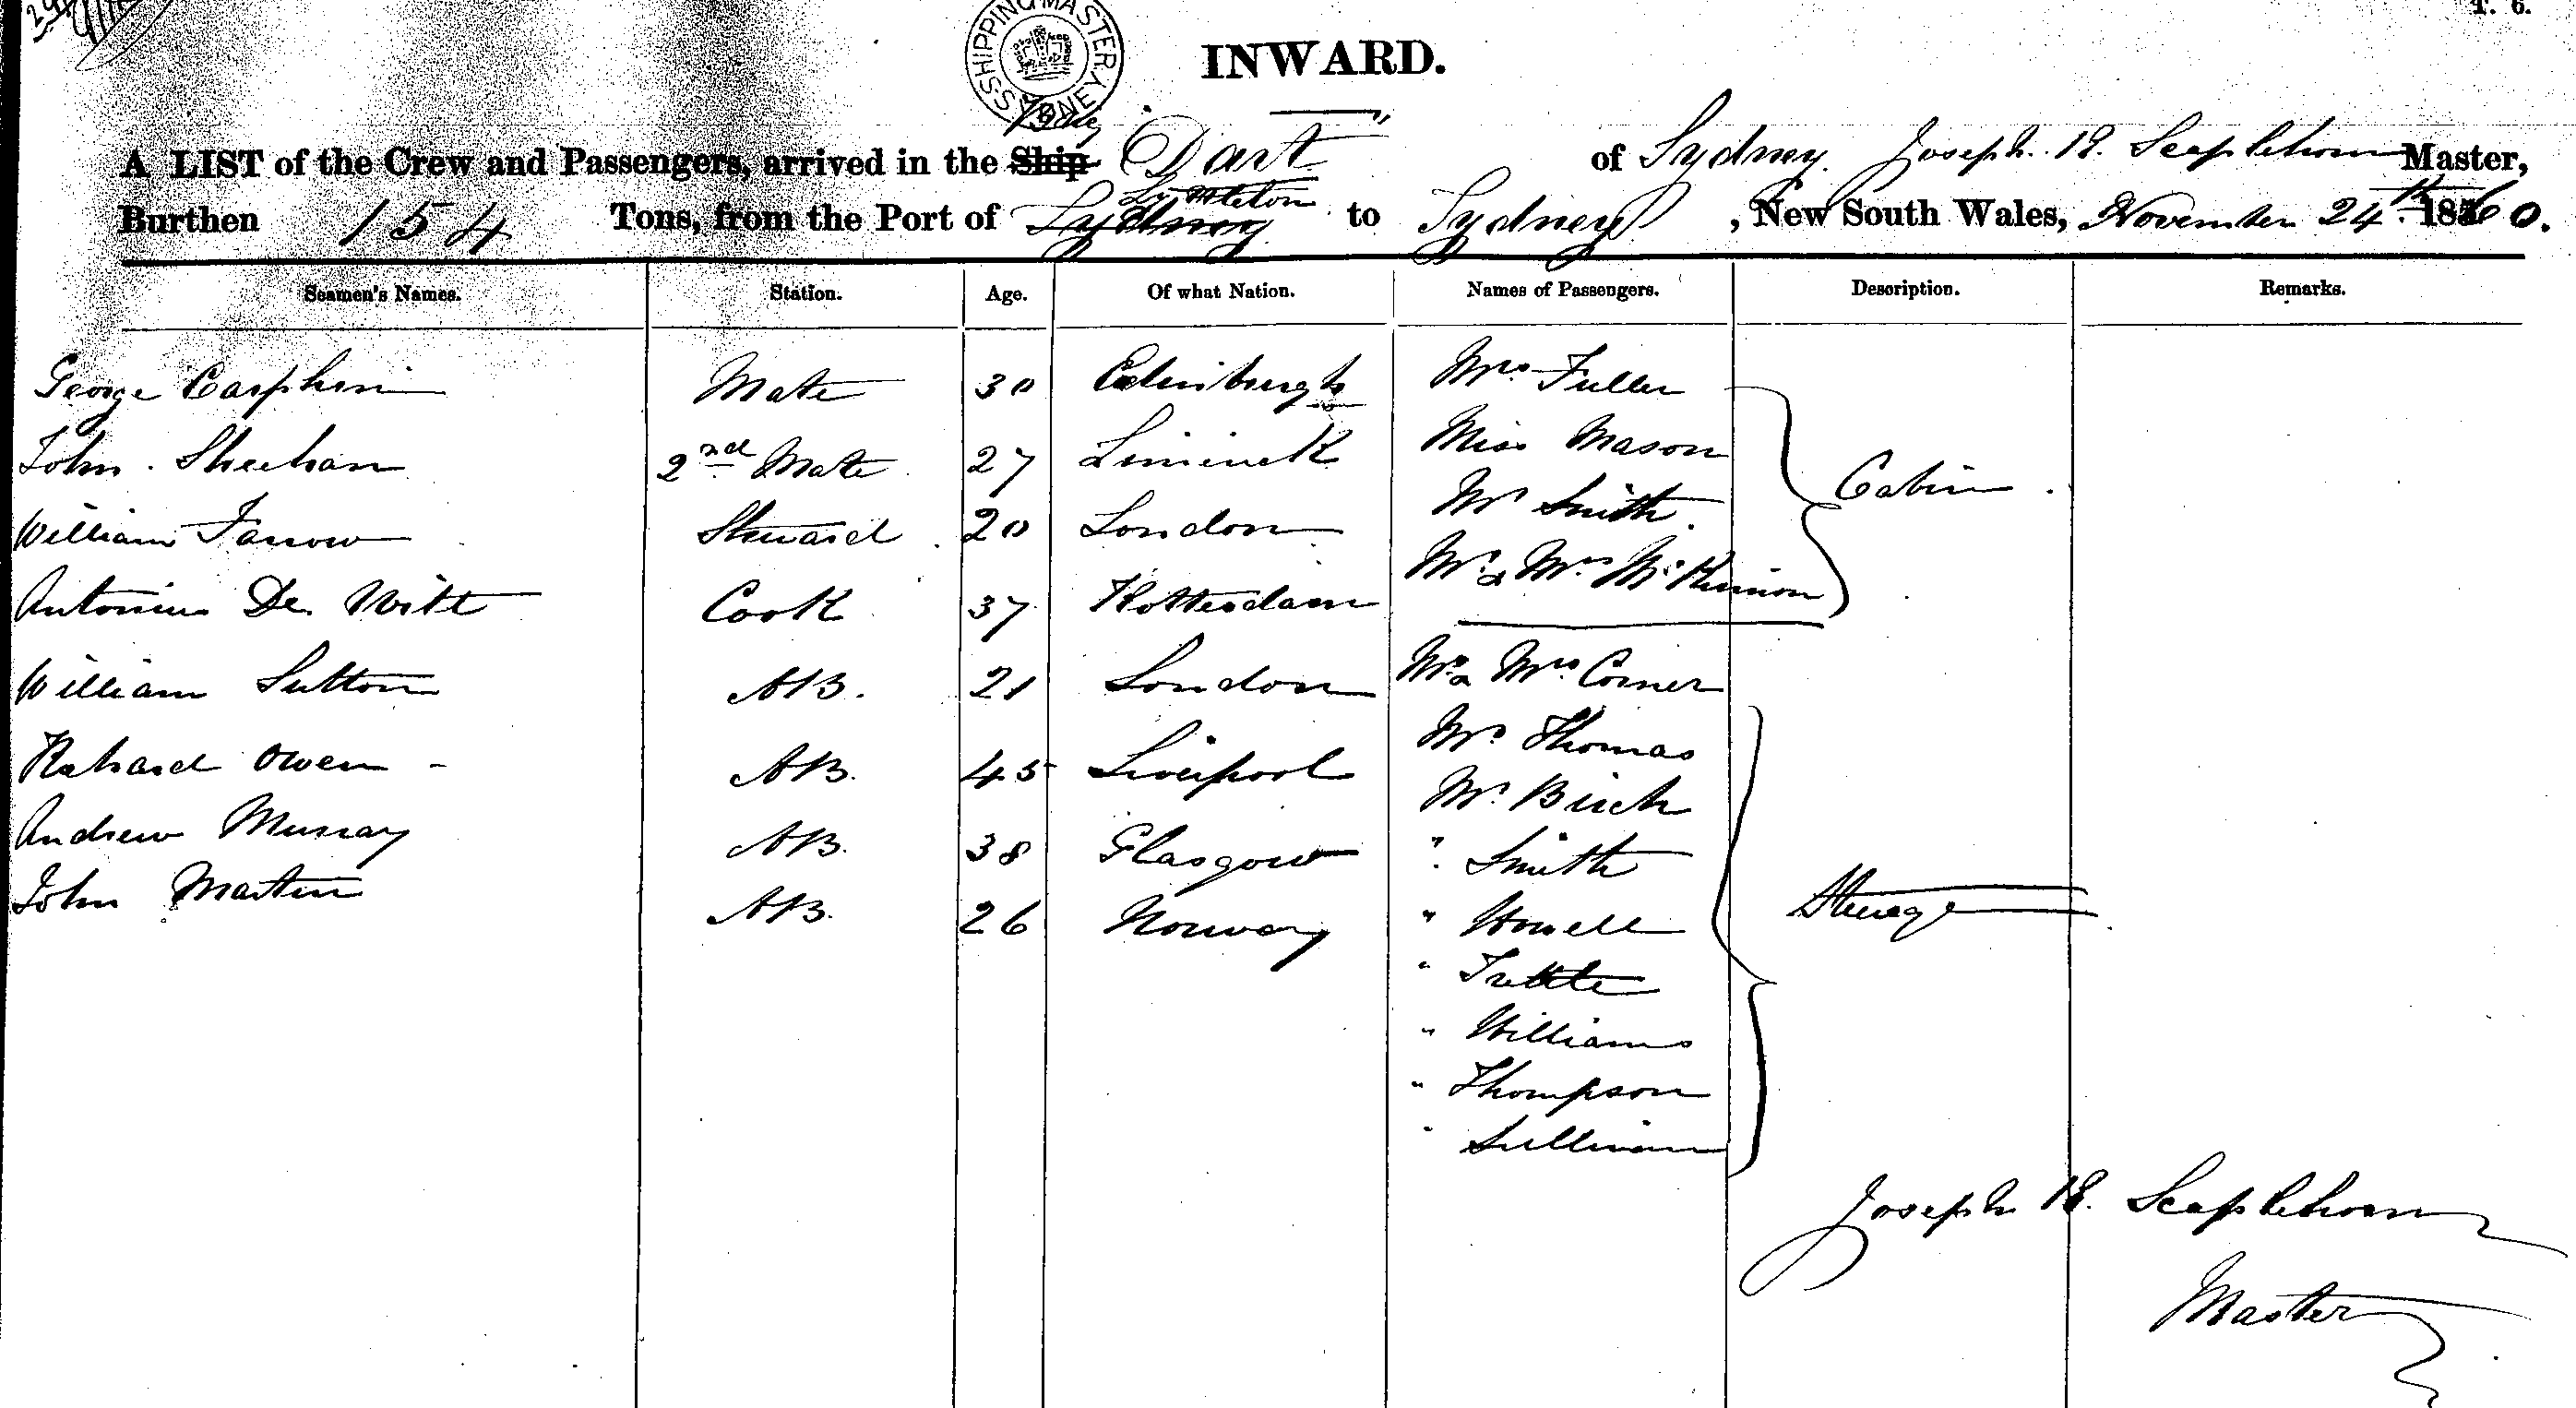 SHIPPING MASTER SYDNEY
T. 6.
INWARD.
A LIST of the Crew and Passengers, arrived in the Ship Dart of Sydney. Joseph H. Scaplehorn Master,
Lyttelton
Burthen 154 Tons, from the Port of Sydney to Sydney, New South Wales, November 24th 1860.
Seamen's Names. Station. Age. Of what Nation. Names of Passengers. Description. Remarks.
George Carphin Mate 30 Edinburgh Mrs Fuller
John Sheehan 2nd Mate 27 Limerick Miss Mason
Cabin.
William Farrow Steward 20 London Mr Smith.
Antonius De Witt Cook 37 Rotterdam Mr & Mrs McKinnon
William Sutton AB. 21 London Mr & Mrs Corner
Richard Owen - AB. 45 Liverpool Mr Thomas
Mr Birch
Andrew Murray AB. 38 Glasgow " Smith
John Martin AB. 26 Norway " Howell
Steerage
" Tuttle
" Williams
" Thompson
" Sullivan
Joseph H. Scaplehorn
Master